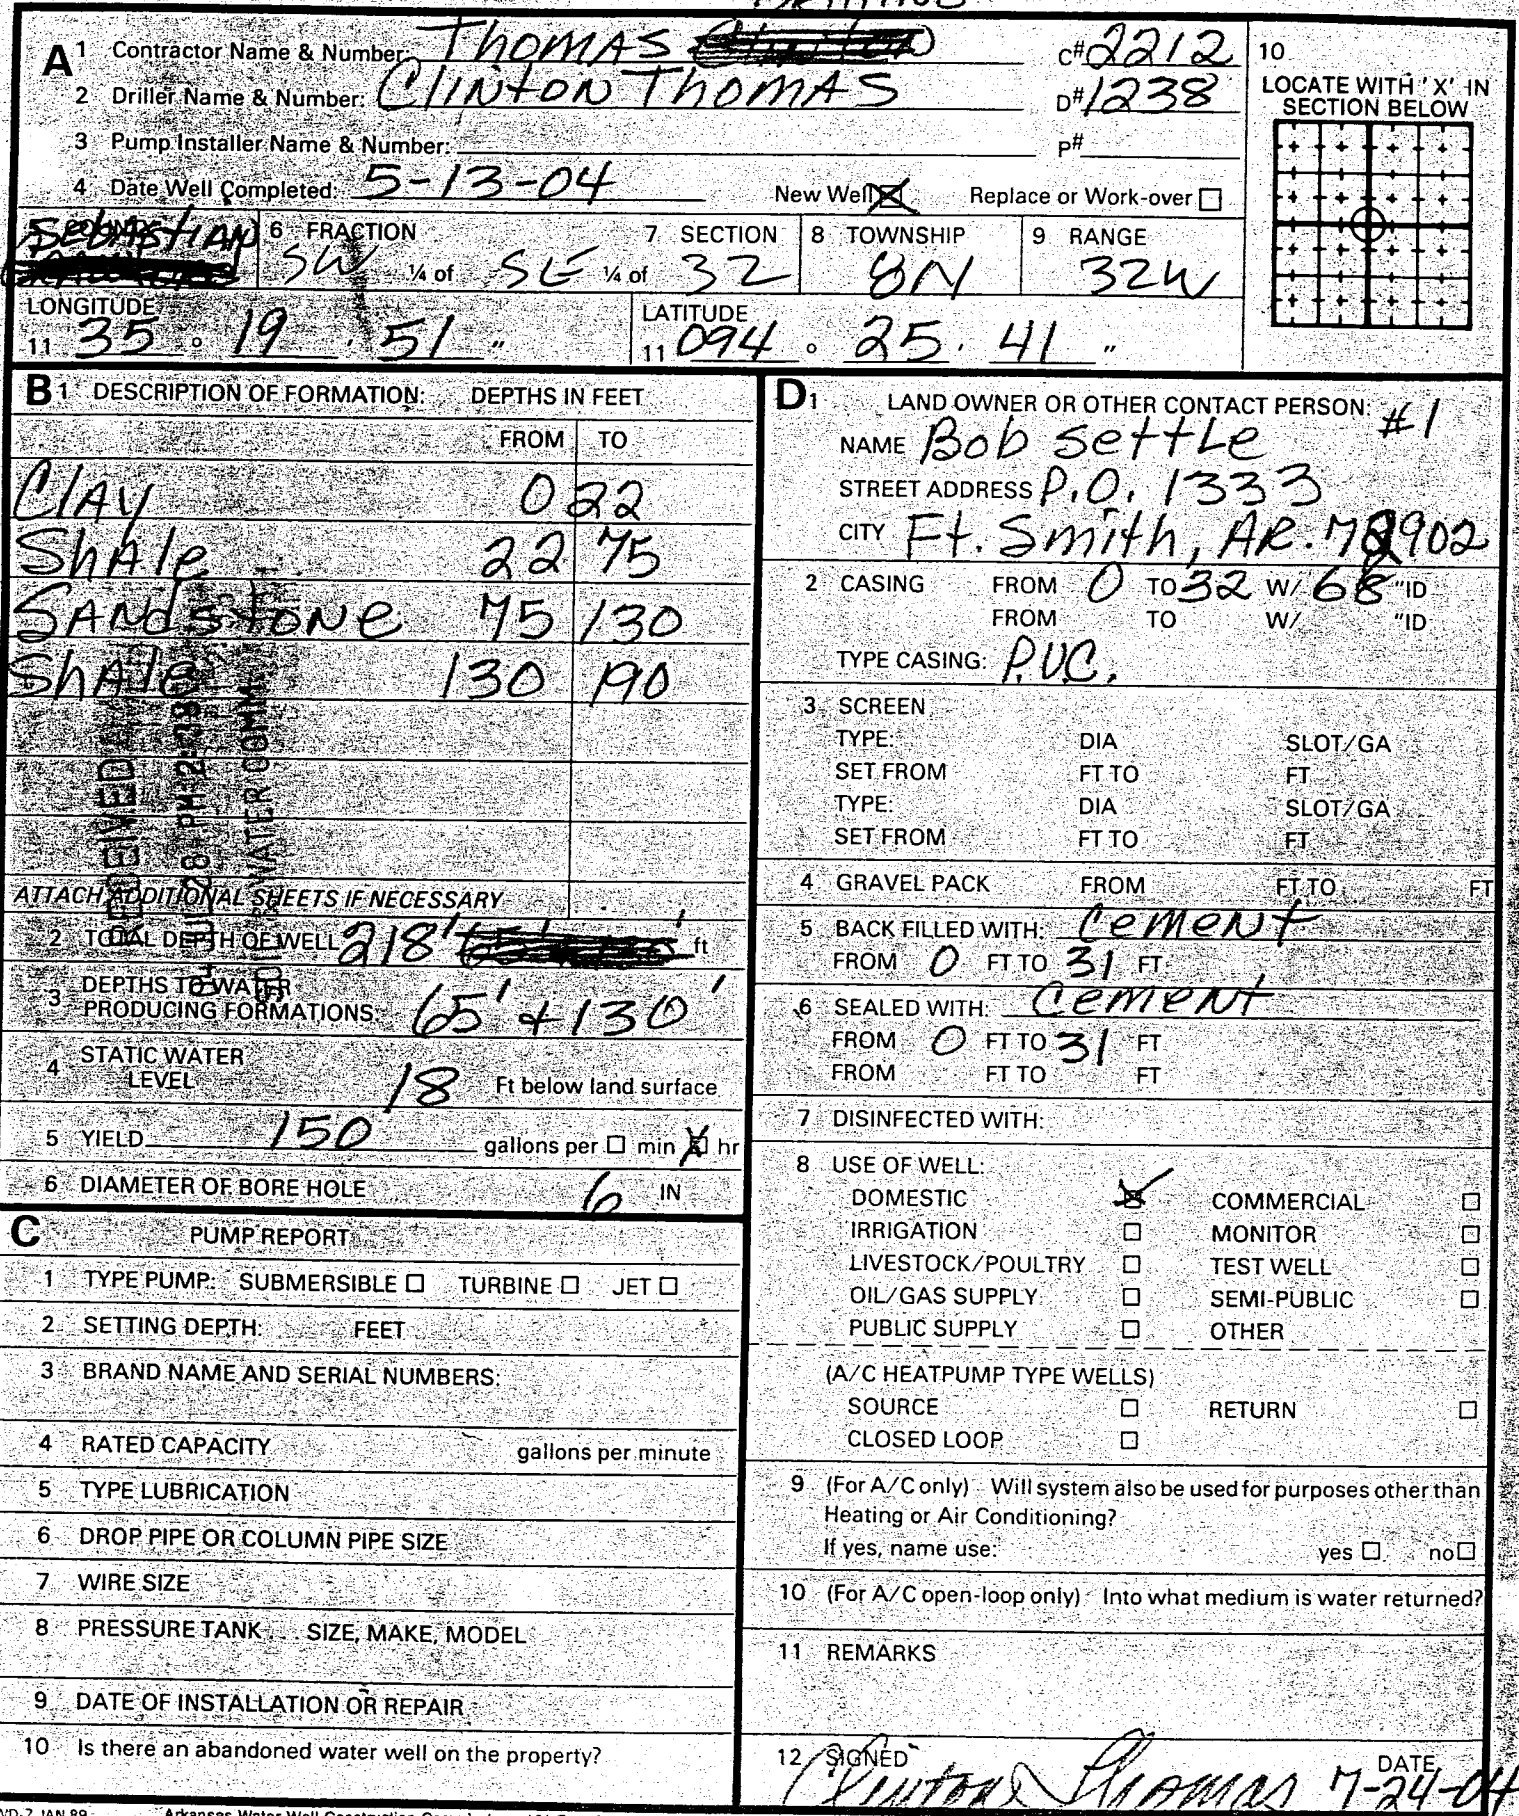 A 1 Contractor Name & Number: THOMAS C# 2212
2 Driller Name & Number: Clinton Thomas D# 1238
3 Pump Installer Name & Number: P#
4 Date Well Completed: 5-13-04 New Well ☒ Replace or Work-over ☐
10
LOCATE WITH 'X' IN
SECTION BELOW
SebastiAN 6 FRACTION 7 SECTION 8 TOWNSHIP 9 RANGE
SW ¼ of SE ¼ of 32 8N 32W
LONGITUDE LATITUDE
11 35 ° 19 ' 51 " 11 094 ° 25 ' 41 "
B 1 DESCRIPTION OF FORMATION: DEPTHS IN FEET
FROM TO
ClAy 0 22
ShAle 22 75
SANdstoNe 75 130
ShAle 130 190
ATTACH ADDITIONAL SHEETS IF NECESSARY
2 TOTAL DEPTH OF WELL 218' ft
3 DEPTHS TO WATER
PRODUCING FORMATIONS: 65' + 130'
4 STATIC WATER
LEVEL 18 Ft below land surface
5 YIELD 150 gallons per ☐ min ☒ hr
6 DIAMETER OF BORE HOLE 6 IN
RECEIVED
WATER COMM
C PUMP REPORT
1 TYPE PUMP: SUBMERSIBLE ☐ TURBINE ☐ JET ☐
2 SETTING DEPTH: FEET
3 BRAND NAME AND SERIAL NUMBERS:
4 RATED CAPACITY gallons per minute
5 TYPE LUBRICATION
6 DROP PIPE OR COLUMN PIPE SIZE
7 WIRE SIZE
8 PRESSURE TANK . . . SIZE, MAKE, MODEL
9 DATE OF INSTALLATION OR REPAIR
10 Is there an abandoned water well on the property?
D 1 LAND OWNER OR OTHER CONTACT PERSON: #1
NAME Bob Settle
STREET ADDRESS P.O. 1333
CITY Ft. Smith, AR. 72902
2 CASING FROM 0 TO 32 W/ "ID
FROM TO W/ "ID
TYPE CASING: P.V.C.
3 SCREEN
TYPE: DIA SLOT/GA
SET FROM FT TO FT
TYPE: DIA SLOT/GA
SET FROM FT TO FT
4 GRAVEL PACK FROM FT TO FT
5 BACK FILLED WITH: cement
FROM 0 FT TO 31 FT
6 SEALED WITH: cement
FROM 0 FT TO 31 FT
FROM FT TO FT
7 DISINFECTED WITH:
8 USE OF WELL:
DOMESTIC ☒ COMMERCIAL ☐
IRRIGATION ☐ MONITOR ☐
LIVESTOCK/POULTRY ☐ TEST WELL ☐
OIL/GAS SUPPLY ☐ SEMI-PUBLIC ☐
PUBLIC SUPPLY ☐ OTHER
(A/C HEATPUMP TYPE WELLS)
SOURCE ☐ RETURN ☐
CLOSED LOOP ☐
9 (For A/C only) Will system also be used for purposes other than
Heating or Air Conditioning?
If yes, name use: yes ☐ no ☐
10 (For A/C open-loop only) Into what medium is water returned?
11 REMARKS
12 SIGNED Clinton Thomas DATE 7-24-04